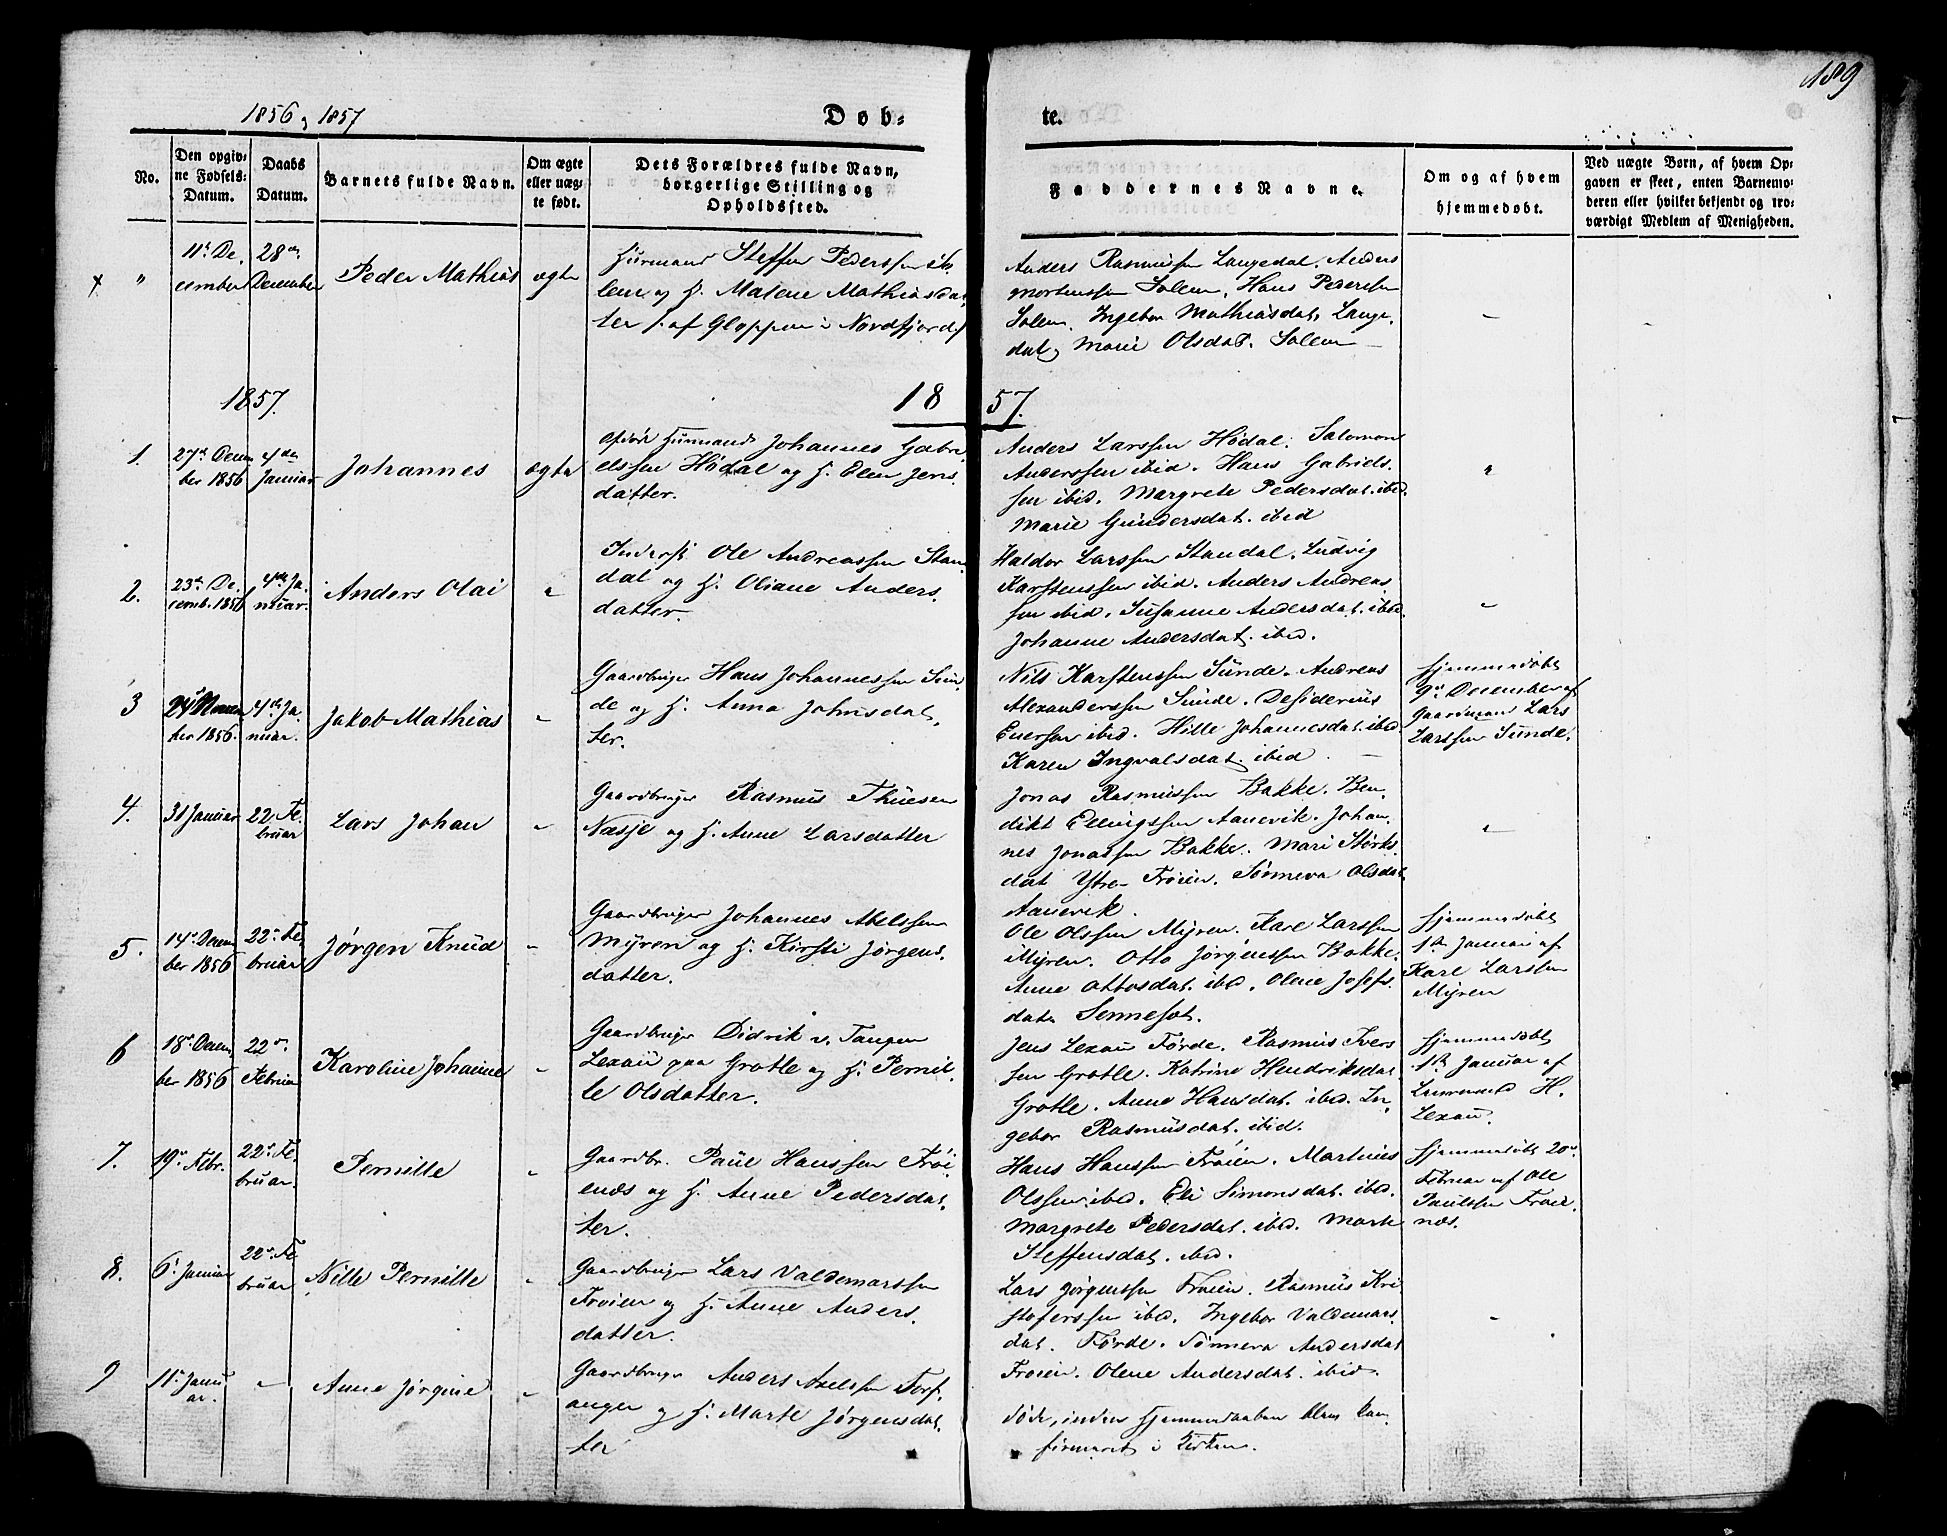 189
1856 og 1857
Døb-
te.
No.
Den opgiv-
ne Fødsels-
Datum.
Daabs
Datum.
Barnets fulde Navn.
Om ægte
eller uæg-
te født.
Dets Forældres fulde Navn,
borgerlige Stilling og
Opholdssted.
Faddernes Navne.
Om og af hvem
hjemmedøbt.
Ved uægte Børn, af hvem Op-
gaven er skeet, enten Barnemo-
deren eller hvilket bekjendt og tro-
værdigt Medlem af Menigheden.
x "
11te De-
cember
28de
December
Peder Mathias
ægte
Huusmand Steffen Pederssen
og H. Malene Mathiasdat-
ter /: af Gloppen i Nordfjord :/
Anders Rasmussen Langedal. Anders
Mortenssen Solem. Hans Pederssen
Solem. Ingebor Mathiasdat. Lange-
dal, Marie Olsdat. Solem
-
-
1857.
18 57.
1.
27de Decem-
ber 1856
4de
Januar
Johannes
ægte
Huusmand Johannes Gabri-
elssen Hødal og H. Elen Jens-
datter.
Anders Larssen Hødal. Salomon
Anderssen ibid. Hans Gabriels-
sen ibid. Margrete Pedersdat. ibid.
Marie Gundersdat. ibid
"
2.
23de De-
cemb. 1856
4de Ja-
nuar.
Anders Olai
"
Inderst Ole Andreassen Stan-
dal og H. Oliane Anders-
datter.
Haldor Larssen Standal. Ludvig
Karstenssen ibid. Anders Andreas-
sen ibid. Susanne Andersdat. ibid.
Johanne Andersdat. ibid.
"
3
ber 1856.
4de Ja-
nuar.
Jakob Mathias
"
Gaardbruger Hans Johannessen Sun-
de og H. Anna Johnsdat-
ter.
Nils Karstenssen Sunde. Andreas
Alexanderssen Sunde. Desiderius
Enersen ibid. Hille Johannesdat. ibid
Karen Ingvalsdat. ibid
Hjemmedøbt
9de December af
Gaardmand Lars
Larssen Sunde.
4.
31 Januar
22 Fe-
bruar
Lars Johan
"
Gaardbruger Rasmus Thuesen
Næsje og H. Anne Larsdatter
Jonas Rasmussen Bakke. Ben-
dikt Ellingssen Aanevik. Johan-
nes Jonassen Bakke. Mari Størks-
dat Ytre-Frøien. Sønneva Olsdat.
Aanevik.
"
5.
14de Decem-
ber 1856
22de Fe-
bruar
Jørgen Knud
"
Gaardbruger Johannes Abelssen
Myren og H. Kirsti Jørgens-
datter.
Ole Olssen Myren. Kare Larssen
Myren. Otto Jørgenssen Bakke.
Anne Ottosdat. ibid. Olene Josefs-
dat. Senneset.
Hjemmedøbt
1ste Januar af
Kare Larssen
Myren
6
18de Decem-
ber 1856
22de
Februar
Karoline Johanne
"
Gaardbruger Didrik v. Tangen
Lexau paa Grotle og H. Pernil-
le Olsdatter.
Jens Lexau Førde. Rasmus Ivers-
sen Grotle. Katrine Hendriksdat.
Grotle. Anne Hansdat. ibid. In-
gebor Rasmusdat. ibid.
Hjemmedøbt
1ste Januar af
H.
Lexau.
7.
19de Febr.
22de Fe-
bruar.
Pernille
"
Gaardbr. Paul Hanssen Frøi-
enæs og H. Anne Pedersdat-
ter.
Hans Hanssen Frøien. Martines
Olssen ibid. Eli Simonsdat. ibid.
Margrete Pedersdat. ibid. Marte
Steffensdat. ibid.
Hjemmedøbt 20de
Februar af Ole
Paulssen Frøie-
næs.
8.
6te Januar
22de Fe-
bruar
Nille Pernille
"
Gaardbruger Lars Valdemarssen
Frøien og H. Anne Anders-
datter.
Lars Jørgenssen Frøien. Rasmus Kri-
stoferssen ibid. Ingebor Valdemars-
dat. Førde. Sønneva Andersdat
Frøien. Olene Andersdat. ibid.
"
9
11te Janu-
ar.
"
Anne Jørgine
"
Gaardbruger Anders Axelssen Torf-
anger og H. Marte Jørgensdat-
ter
døde, inden Hjemmedaaben blev con-
firmeret i Kirken.